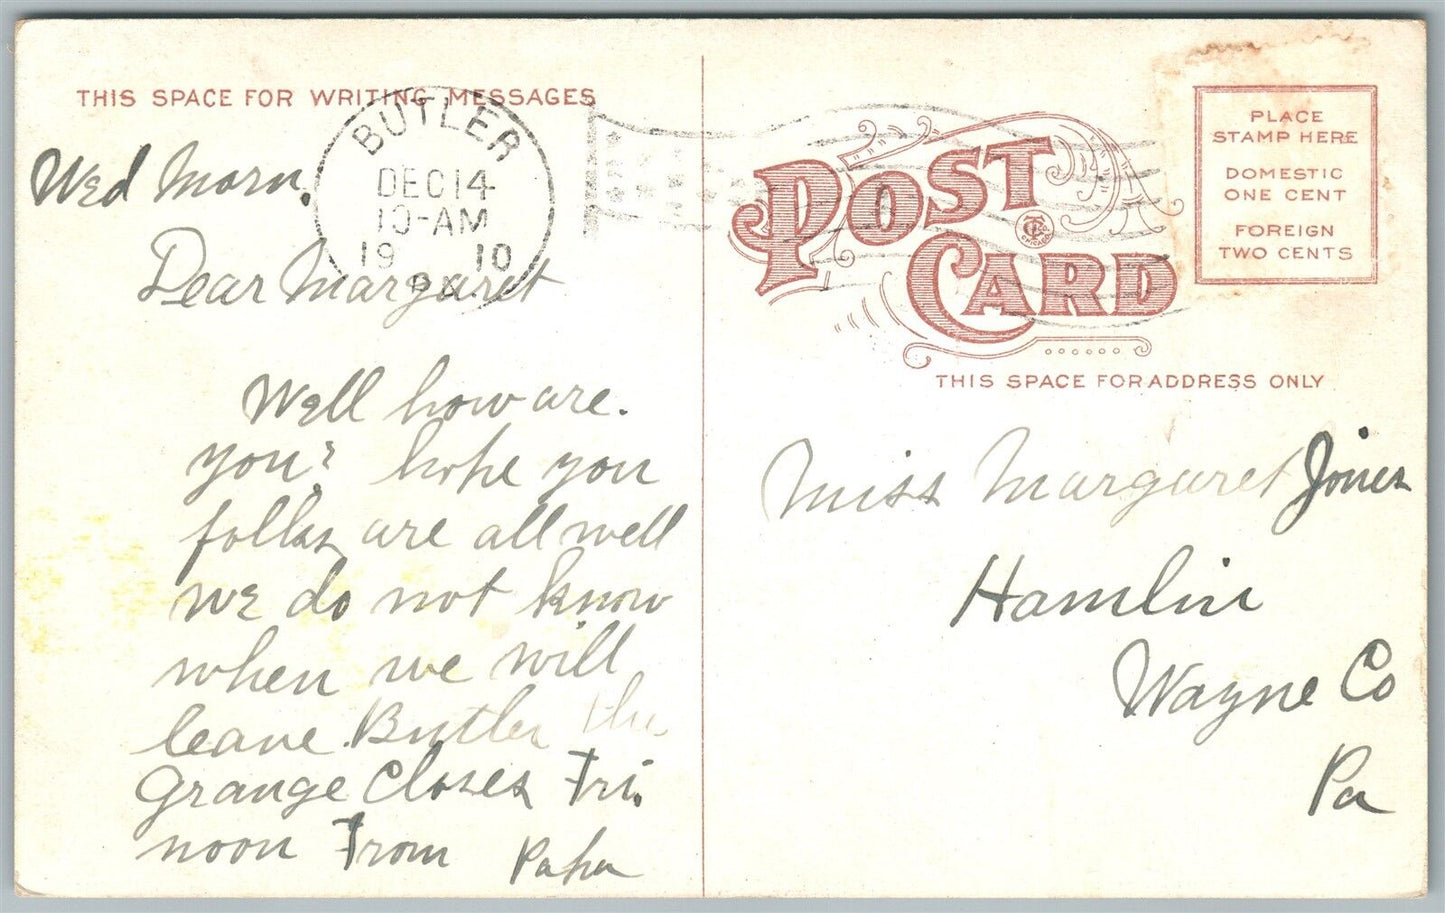 THIS SPACE FOR WRITING MESSAGES
BUTLER
DEC 14
10-AM
19 10
PA.
Wed Morn.
Dear Margaret
Well how are.
you? hope you
folks are all well
we do not know
when we will
leave Butler the
Grange Closes Fri.
noon From Papa
POST CARD
PLACE
STAMP HERE
DOMESTIC
ONE CENT
FOREIGN
TWO CENTS
THIS SPACE FOR ADDRESS ONLY
Miss Margaret Jones
Hamlin
Wayne Co
Pa